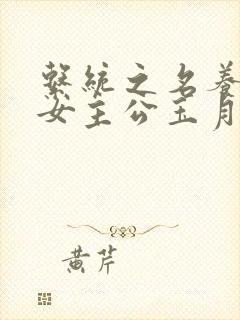 繫統之名養
女主公王月
黄芹